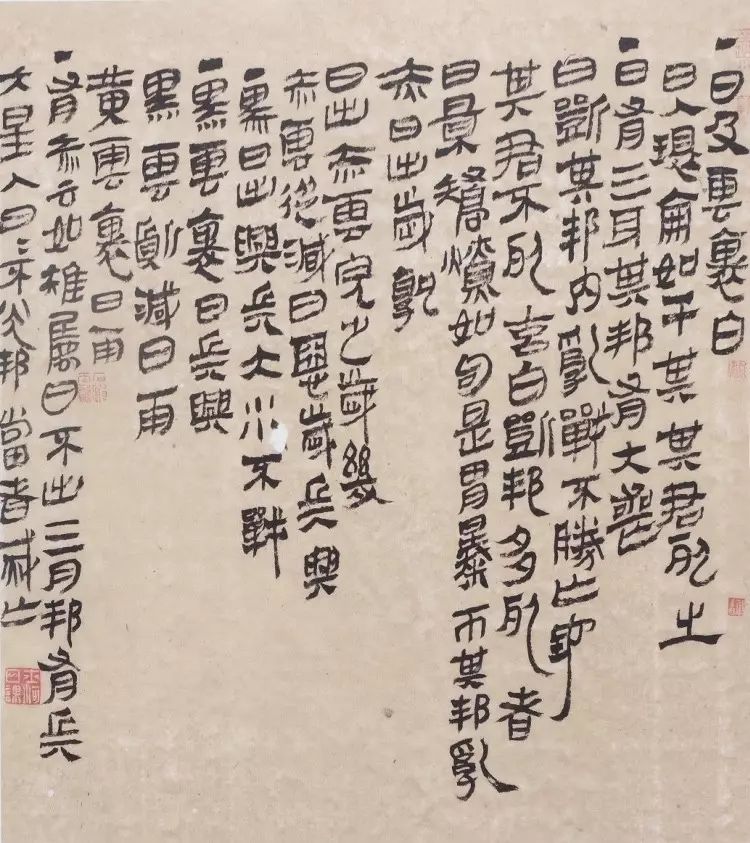 日及雲裹白
日入環侖如干其其君死之
日有三耳其邦有大喪
日斷其邦內亂戰不勝亡地
其君不死吉白豈邦多死者
日暈如句是胃暴而其邦亂
赤日出歲孰
日出赤雲完之歲幾
赤雲從減日歲兵興
黑日出興兵大小不戰
黑雲裹日兵興
黑雲減日雨
黃雲裹日雨
有赤云如雉屬日不出三月邦有兵
大星入日日不光邦當者滅亡